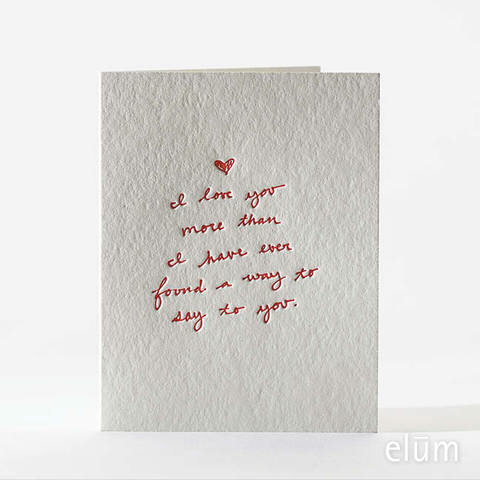 I love you
more than
I have ever
found a way to
say to you.
elūm